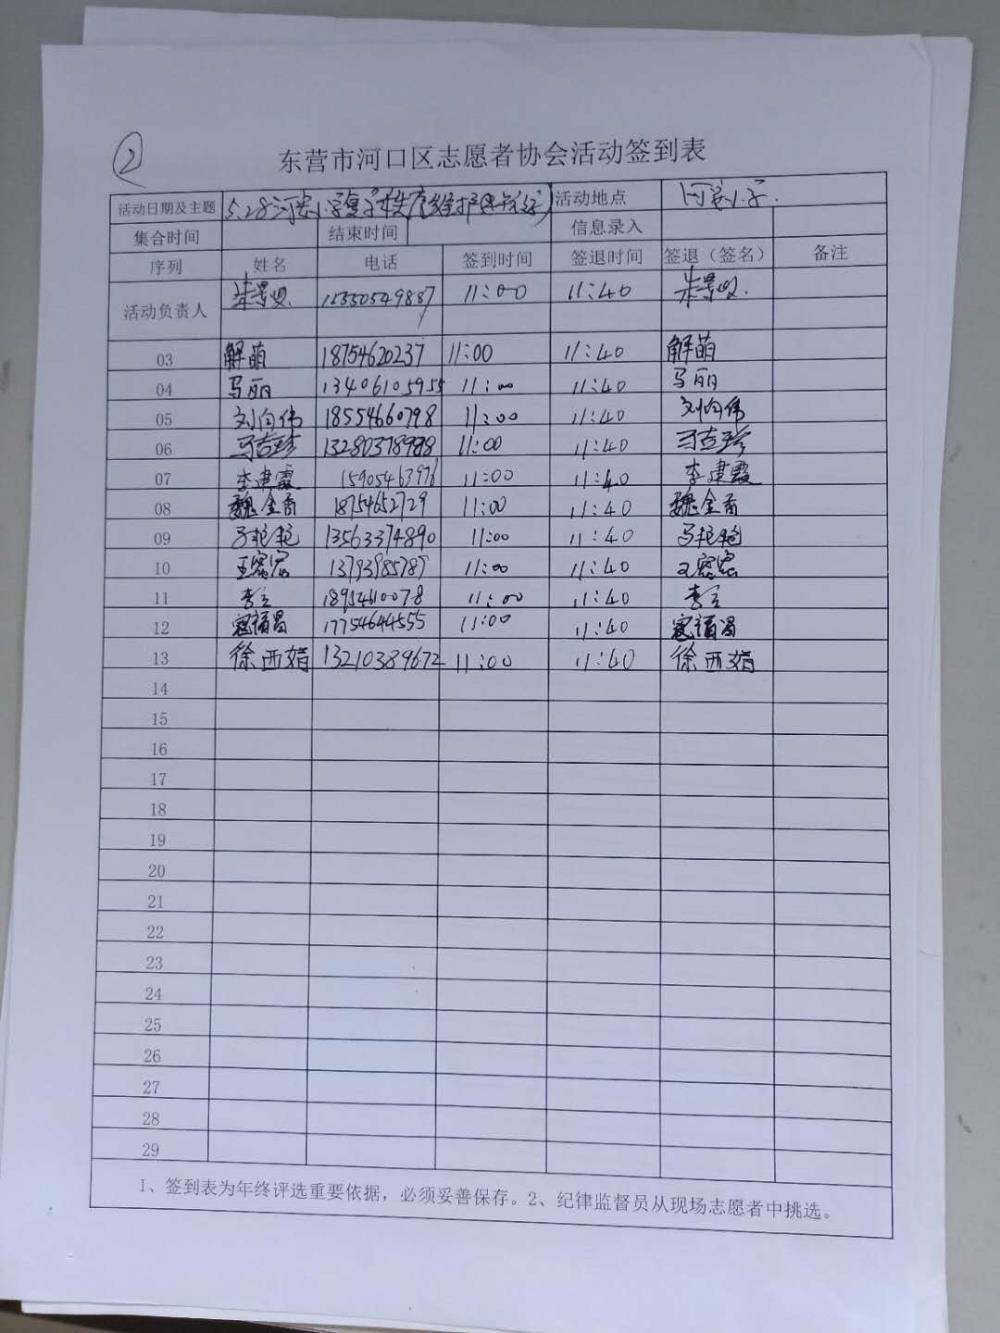 ②
东营市河口区志愿者协会活动签到表
活动日期及主题 5.28河安小学复学秩序维护 活动地点 河安小学.
集合时间 结束时间 信息录入
序列 姓名 电话 签到时间 签退时间 签退（签名） 备注
活动负责人 11:00 11:40
03 解萌 18754620237 11:00 11:40 解萌
04 马丽 13406105955 11:00 11:40 马丽
05 刘向伟 18554660798 11:00 11:40 刘向伟
06 马吉珍 11:00 11:40 马吉珍
07 李建霞 15905463976 11:00 11:40 李建霞
08 魏金香 18754652729 11:00 11:40 魏金香
09 13563374890 11:00 11:40
10 王密密 13793985787 11:00 11:40 王密密
11 李立 18954610078 11:00 11:40 李立
12 寇福昌 17754644555 11:00 11:40 寇福昌
13 徐西娟 13210389672 11:00 11:40 徐西娟
14
15
16
17
18
19
20
21
22
23
24
25
26
27
28
29
1、签到表为年终评选重要依据，必须妥善保存。2、纪律监督员从现场志愿者中挑选。